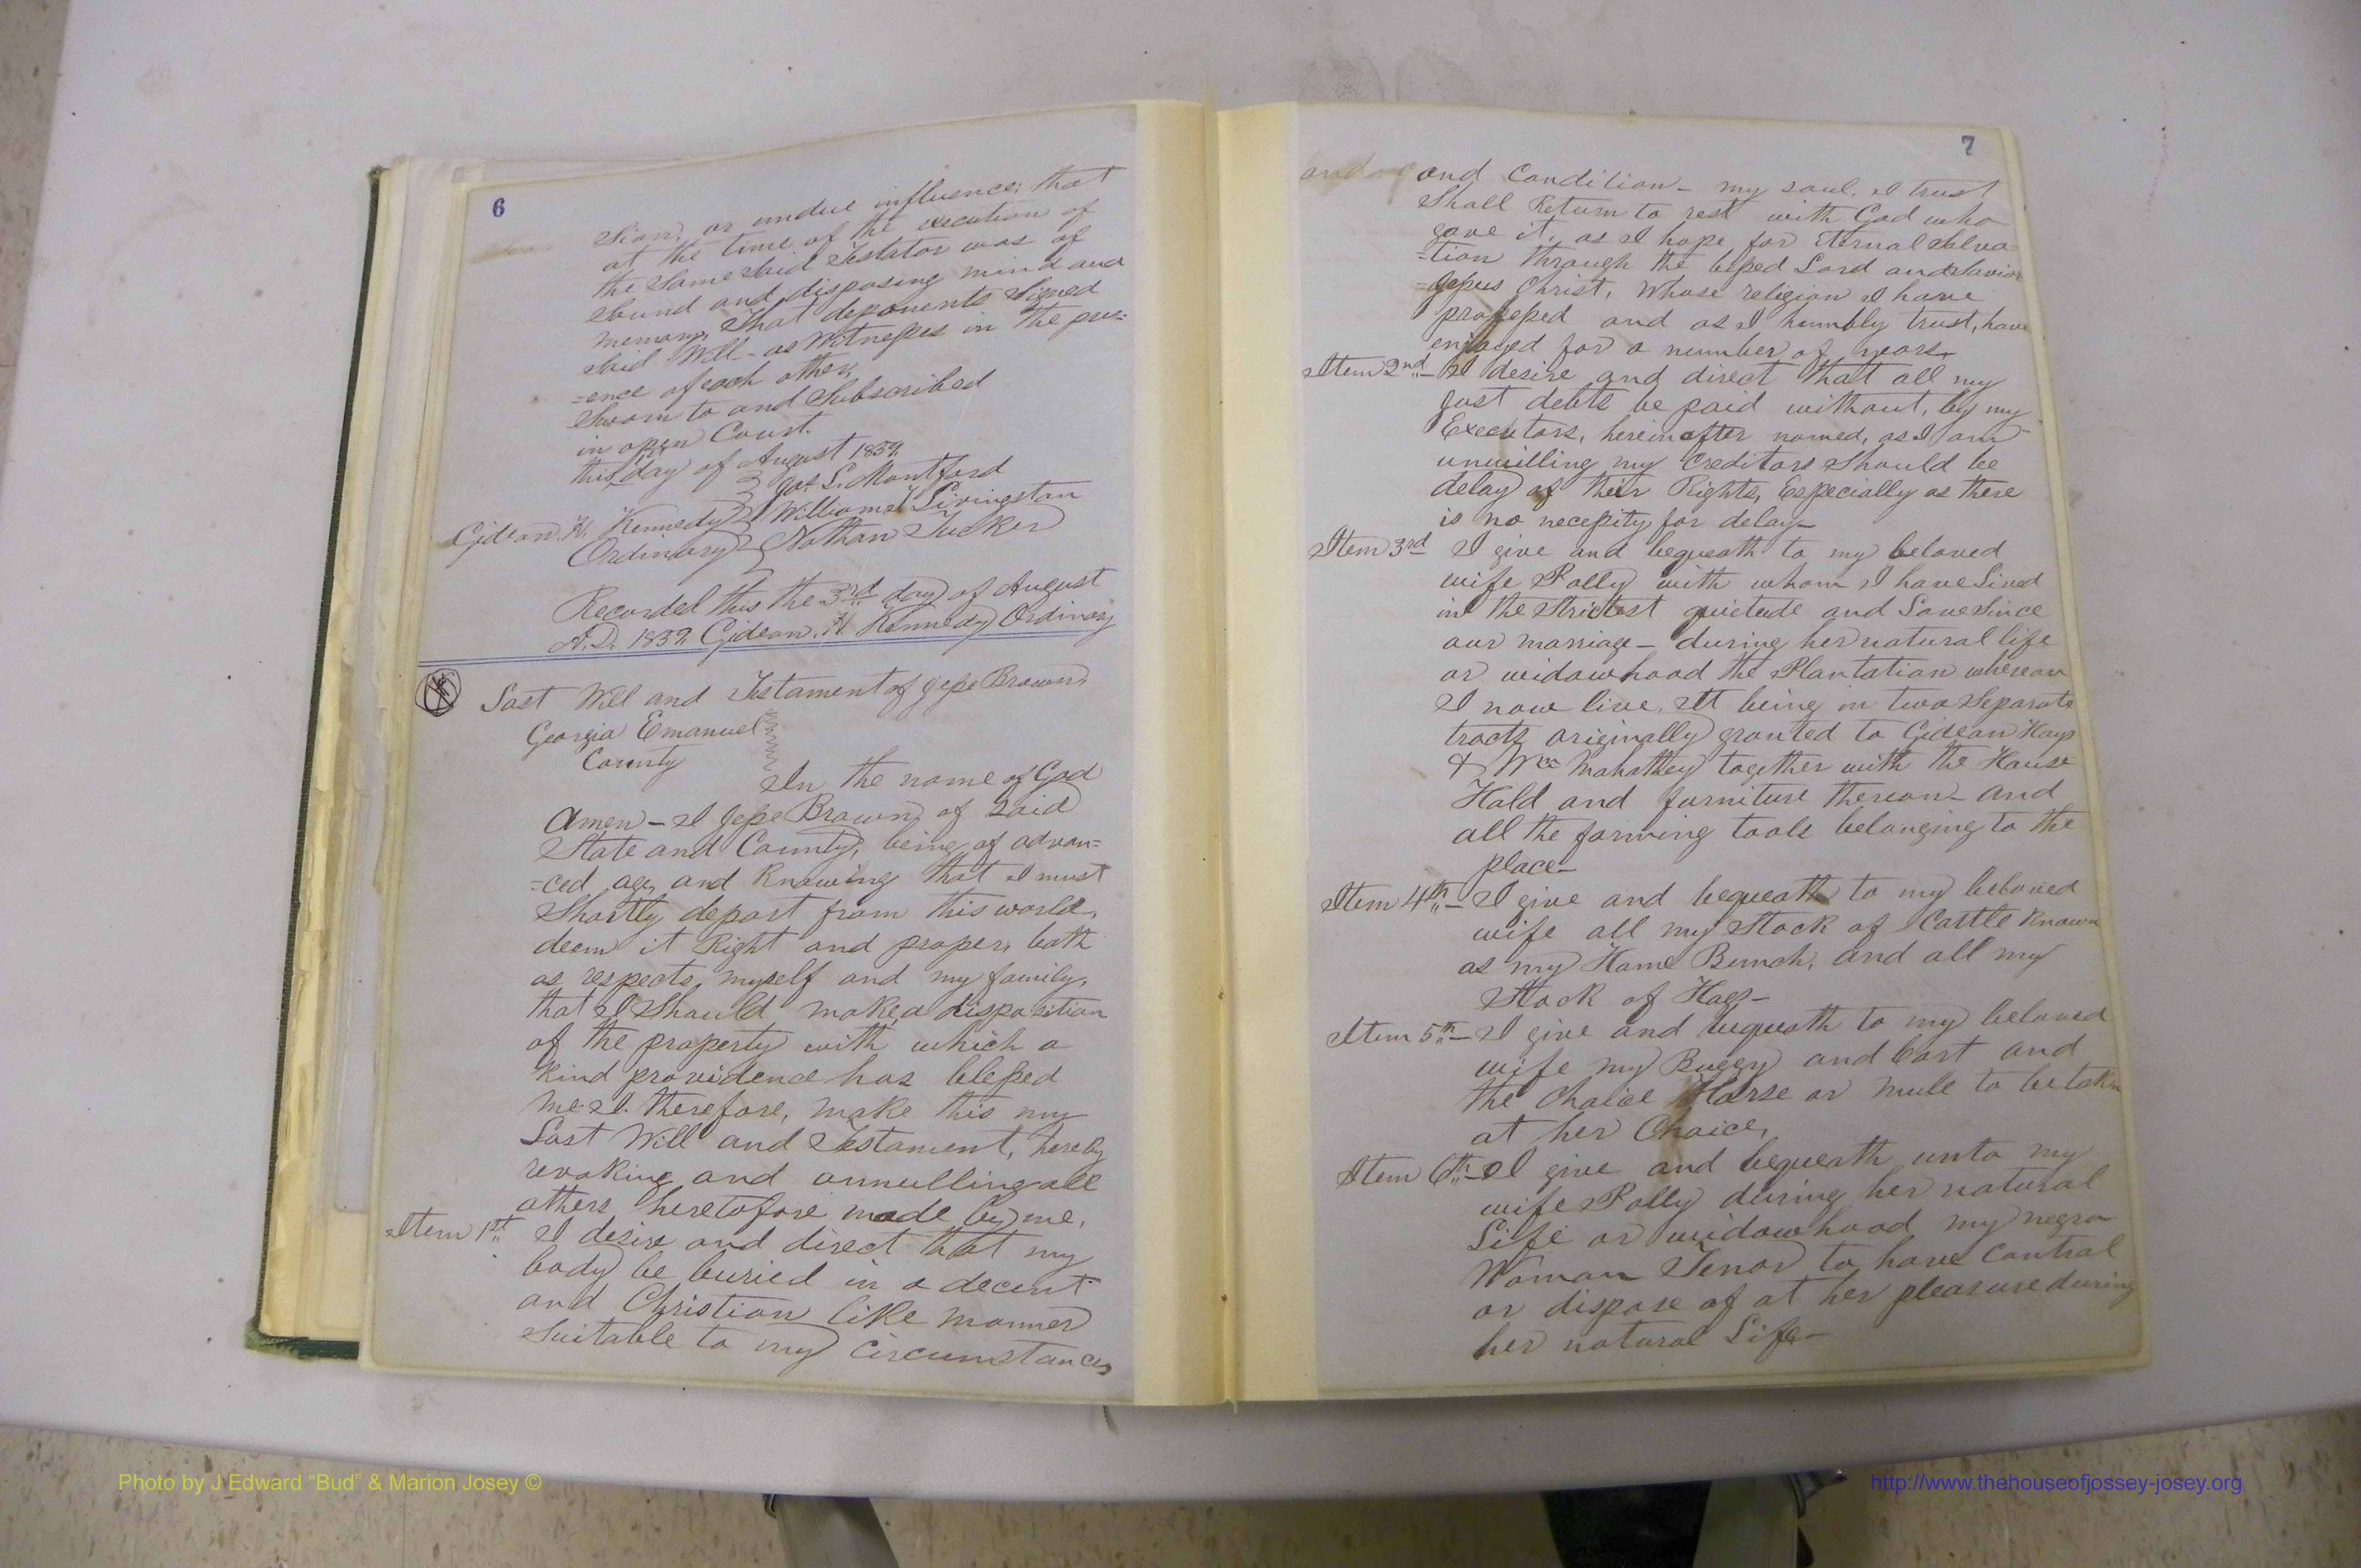 6
sion, or undue influence; that
at the time of the execution of
the same said Testator was of
sound and disposing mind and
memory, That deponents signed
said Will - as Witnesses in the pres=
=ence of each other,
Sworn to and Subscribed
in open Court.
this day of August 1859.
Jas. S. Montford
Gideon. H. Kennedy William Livingston
Ordinary Nathan Tucker
Recorded this the 3rd day of August
A.D. 1859. Gideon. H Kennedy Ordinary
Last Will and Testament of Jesse Brown,
Georgia Emanuel
County
In the name of God
Amen - I Jesse Brown, of said
State and County, being of advan=
=ced age, and Knowing that I must
Shortly depart from this world,
deem it Right and proper, both
as respects, myself and my family,
that I Should make a disposition
of the property with which a
kind providence has blessed
me. I. therefore, make this my
Last Will and Testament, hereby
revoking and annulling all
others heretofore made by me,
Item 1st I desire and direct that my
body be buried in a decent
and Christian like manner
Suitable to my Circumstances
7
and Condition - my soul, I trust
Shall Return to rest with God who
gave it, as I hope for Eternal Salva=
=tion through the blessed Lord and Savior
=Jesus Christ, Whose religion I have
professed and as I humbly trust, have
enjoyed for a number of years.
Item 2nd - I desire and direct that all my
just debts be paid without, by my
Executors, hereinafter named, as I am
unwilling my Creditors Should be
delay of their Rights, Especially as there
is no necessity for delay -
Item 3rd I give and bequeath to my beloved
wife Polly with whom I have Lived
in the Strictest quietude and Love Since
our marriage - during her natural life
or widowhood the Plantation whereon
I now live, It being in two Separate
tracts originally granted to Gideon Hays
& Mahathey together with the House
Hold and furniture thereon - and
all the farming tools belonging to the
place -
Item 4th - I give and bequeath to my beloved
wife all my Stock of Cattle Known
as my Home Bunch, and all my
Stock of Hogs -
Item 5th - I give and bequeath to my beloved
wife my Buggy and Cart and
the Choice Horse or Mule to be taken
at her Choice,
Item 6th - I give and bequeath unto my
wife Polly during her natural
Life or widowhood my negro
Woman Tenor to have Control
or dispose of at her pleasure during
her natural Life -
Photo by J Edward “Bud” & Marion Josey ©
http://www.thehouseofjossey-josey.org